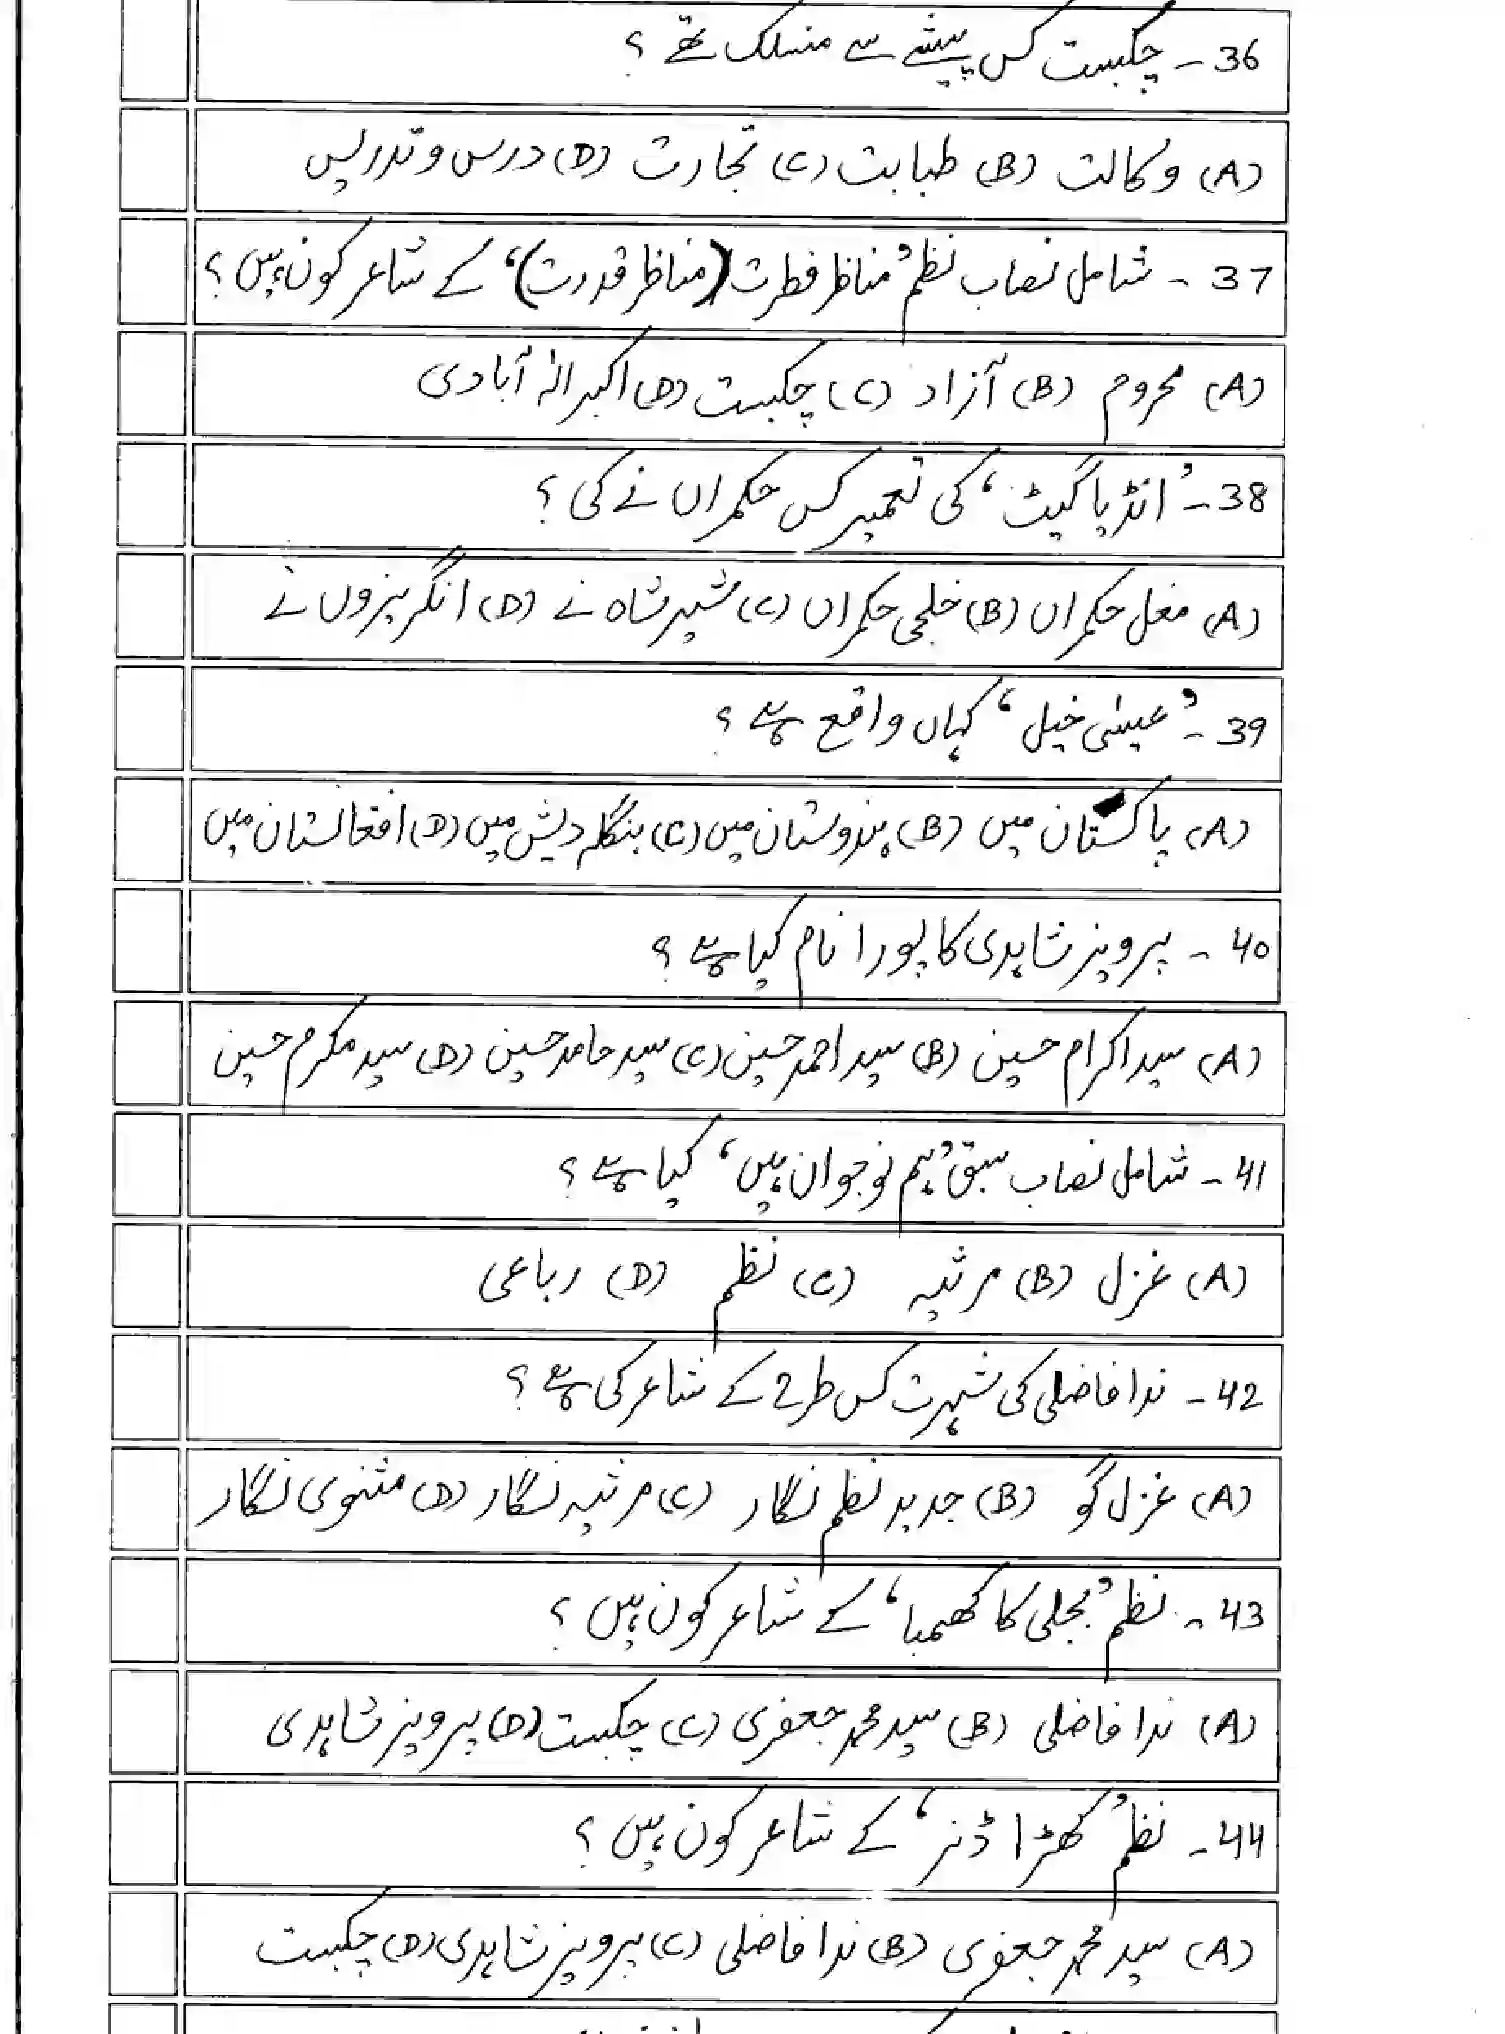 36 - چکبست کس پیشے سے منسلک تھے ؟
(A) وکالت (B) طبابت (C) تجارت (D) درس و تدریس
37 - شامل نصاب نظم ’مناظر فطرت (مناظر قدرت)‘ کے شاعر کون ہیں ؟
(A) محروم (B) آزاد (C) چکبست (D) اکبر الہٰ آبادی
38 - ’انڈیا گیٹ‘ کی تعمیر کس حکمراں نے کی ؟
(A) مغل حکمراں (B) خلجی حکمراں (C) شیر شاہ نے (D) انگریزوں نے
39 - ’عیسٰی خیل‘ کہاں واقع ہے ؟
(A) پاکستان میں (B) ہندوستان میں (C) بنگلہ دیش میں (D) افغانستان میں
40 - پرویز شاہدی کا پورا نام کیا ہے ؟
(A) سید اکرام حسین (B) سید احمد حسین (C) سید حامد حسین (D) سید مکرم حسین
41 - شامل نصاب سبق ’ہم نوجوان ہیں‘ کیا ہے ؟
(A) غزل (B) مرثیہ (C) نظم (D) رباعی
42 - ندا فاضلی کی شہرت کس طرح کے شاعر کی ہے ؟
(A) غزل گو (B) جدید نظم نگار (C) مرثیہ نگار (D) مثنوی نگار
43 - نظم ’بجلی کا کھمبا‘ کے شاعر کون ہیں ؟
(A) ندا فاضلی (B) سید محمد جعفری (C) چکبست (D) پرویز شاہدی
44 - نظم ’کھڑا ڈنر‘ کے شاعر کون ہیں ؟
(A) سید محمد جعفری (B) ندا فاضلی (C) پرویز شاہدی (D) چکبست